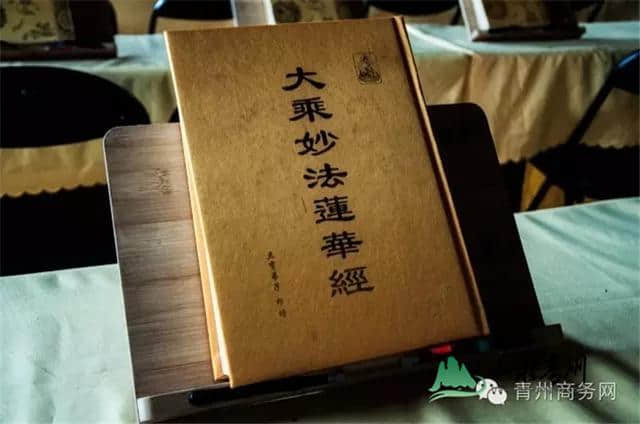 大乘妙法蓮華經
弟子
青州商务网